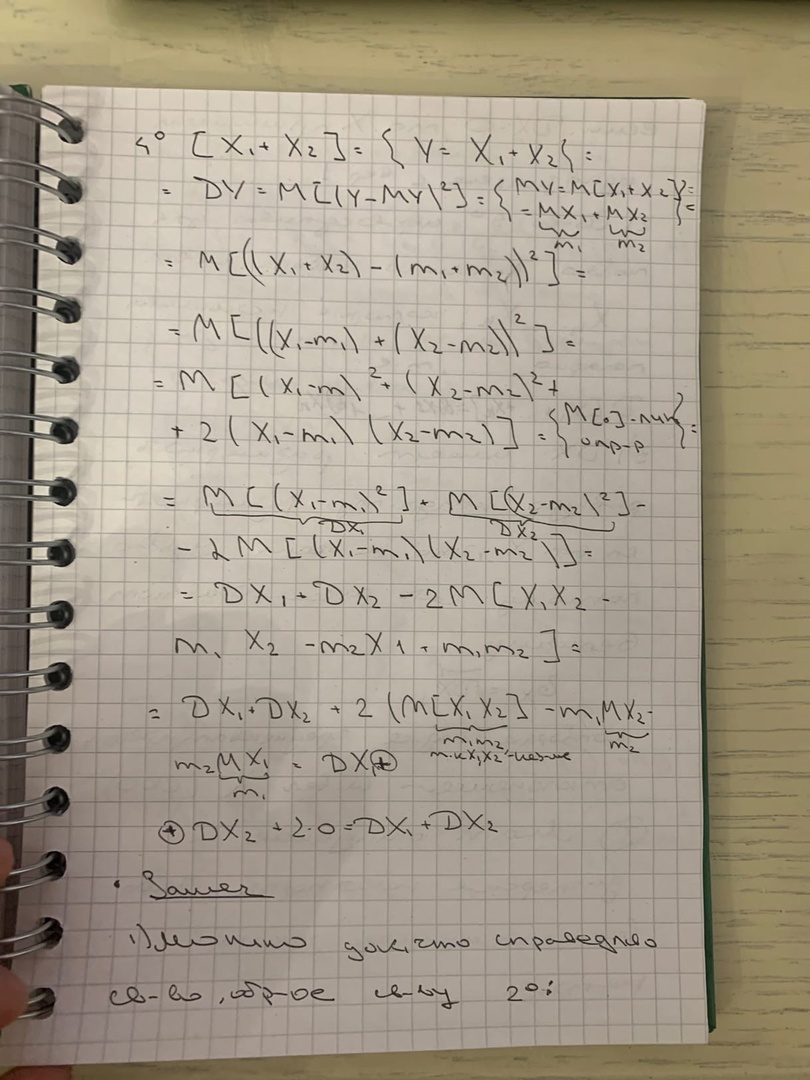 4° [X₁+ X₂] = { Y = X₁+X₂} =
= DY = M[(Y-MY)²] = { MY=M[X₁+X₂] =
= MX₁ + MX₂ } =
m₁ m₂
= M[((X₁+X₂) - (m₁+m₂))²] =
= M[((X₁-m₁) + (X₂-m₂))²] =
= M[(X₁-m)² + (X₂-m₂)² +
+ 2(X₁-m₁)(X₂-m₂)] = { M[o] - лин
опр-р } =
= M[(X₁-m₁)²] + M[(X₂-m₂)²] -
DX₁ DX₂
- 2M[(X₁-m₁)(X₂-m₂)] =
= DX₁ + DX₂ - 2M[X₁X₂ -
m₁ X₂ - m₂X1 + m₁m₂] =
= DX₁+DX₂ + 2(M[X₁X₂] - m₁MX₂-
m₁m₂ m₂
т.к X₁X₂-незав
m₂MX₁ = DX₁⊕
m₁
⊕ DX₂ + 2·0 = DX₁ + DX₂
• Замеч
1) можно док, что справедливо
св-во, обр-ое св-ву 2°: